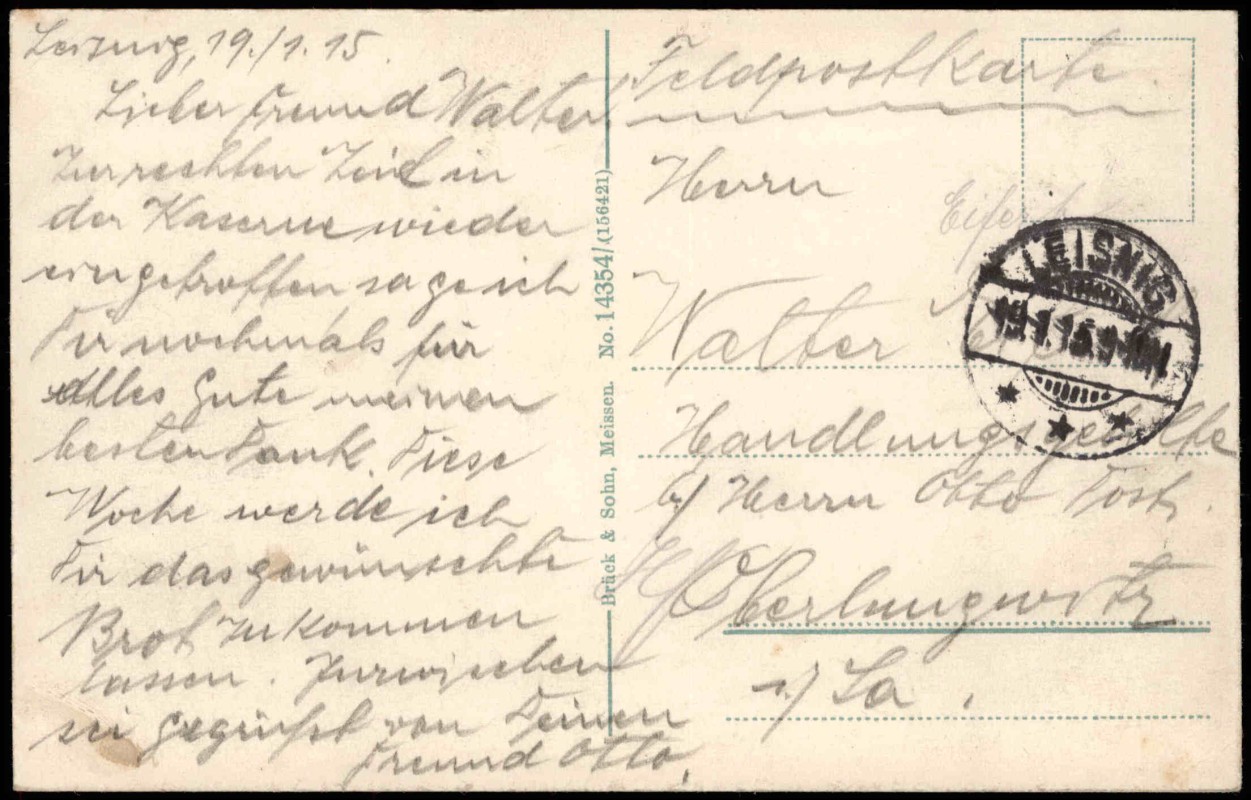 Leisnig, 19./1. 15.
Lieber Freund Walter!
Zur rechten Zeit in
der Kaserne wieder
eingetroffen sage ich
Dir nochmals für
alles Gute meinen
besten Dank. Diese
Woche werde ich
Dir das gewünschte
Brot zukommen
lassen. Inzwischen
sei gegrüßt von Deinen
Freund Otto.
Brück & Sohn, Meissen. No. 14354/(156421)
Feldpostkarte
Herrn
LEISNIG
19.1.15.9-10V.
Walter
Handlungsgehilfe
b/ Herrn Otto Post.
Oberlungwitz
i/ Sa.